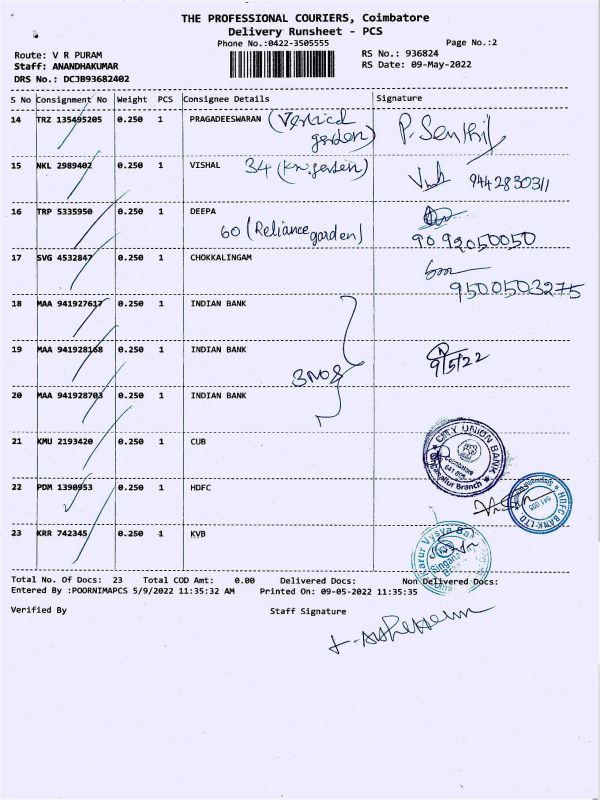 THE PROFESSIONAL COURIERS, Coimbatore
Delivery Runsheet - PCS
Phone No.:0422-3505555
Page No.:2
Route: V R PURAM
RS No.: 936824
Staff: ANANDHAKUMAR
RS Date: 09-May-2022
DRS No.: DCJB93682402
S No Consignment No Weight PCS Consignee Details Signature
14 TRZ 135495205 0.250 1 PRAGADEESWARAN (Vertical garden) P. Senthil
15 NKL 2989402 0.250 1 VISHAL 34 9442830311
16 TRP 5335950 0.250 1 DEEPA
60 (Reliance garden) 9092050050
17 SVG 4532847 0.250 1 CHOKKALINGAM
9500503275
18 MAA 941927617 0.250 1 INDIAN BANK
19 MAA 941928168 0.250 1 INDIAN BANK 9/5/22
3NOS
20 MAA 941928703 0.250 1 INDIAN BANK
21 KMU 2193420 0.250 1 CUB
CITY UNION BANK
Coimbatore
Branch
22 PDM 1390953 0.250 1 HDFC
HDFC BANK LTD
641 005
23 KRR 742345 0.250 1 KVB
Karur Vysya Bank
Total No. Of Docs: 23 Total COD Amt: 0.00 Delivered Docs: Non Delivered Docs:
Entered By :POORNIMAPCS 5/9/2022 11:35:32 AM Printed On: 09-05-2022 11:35:35
Verified By Staff Signature